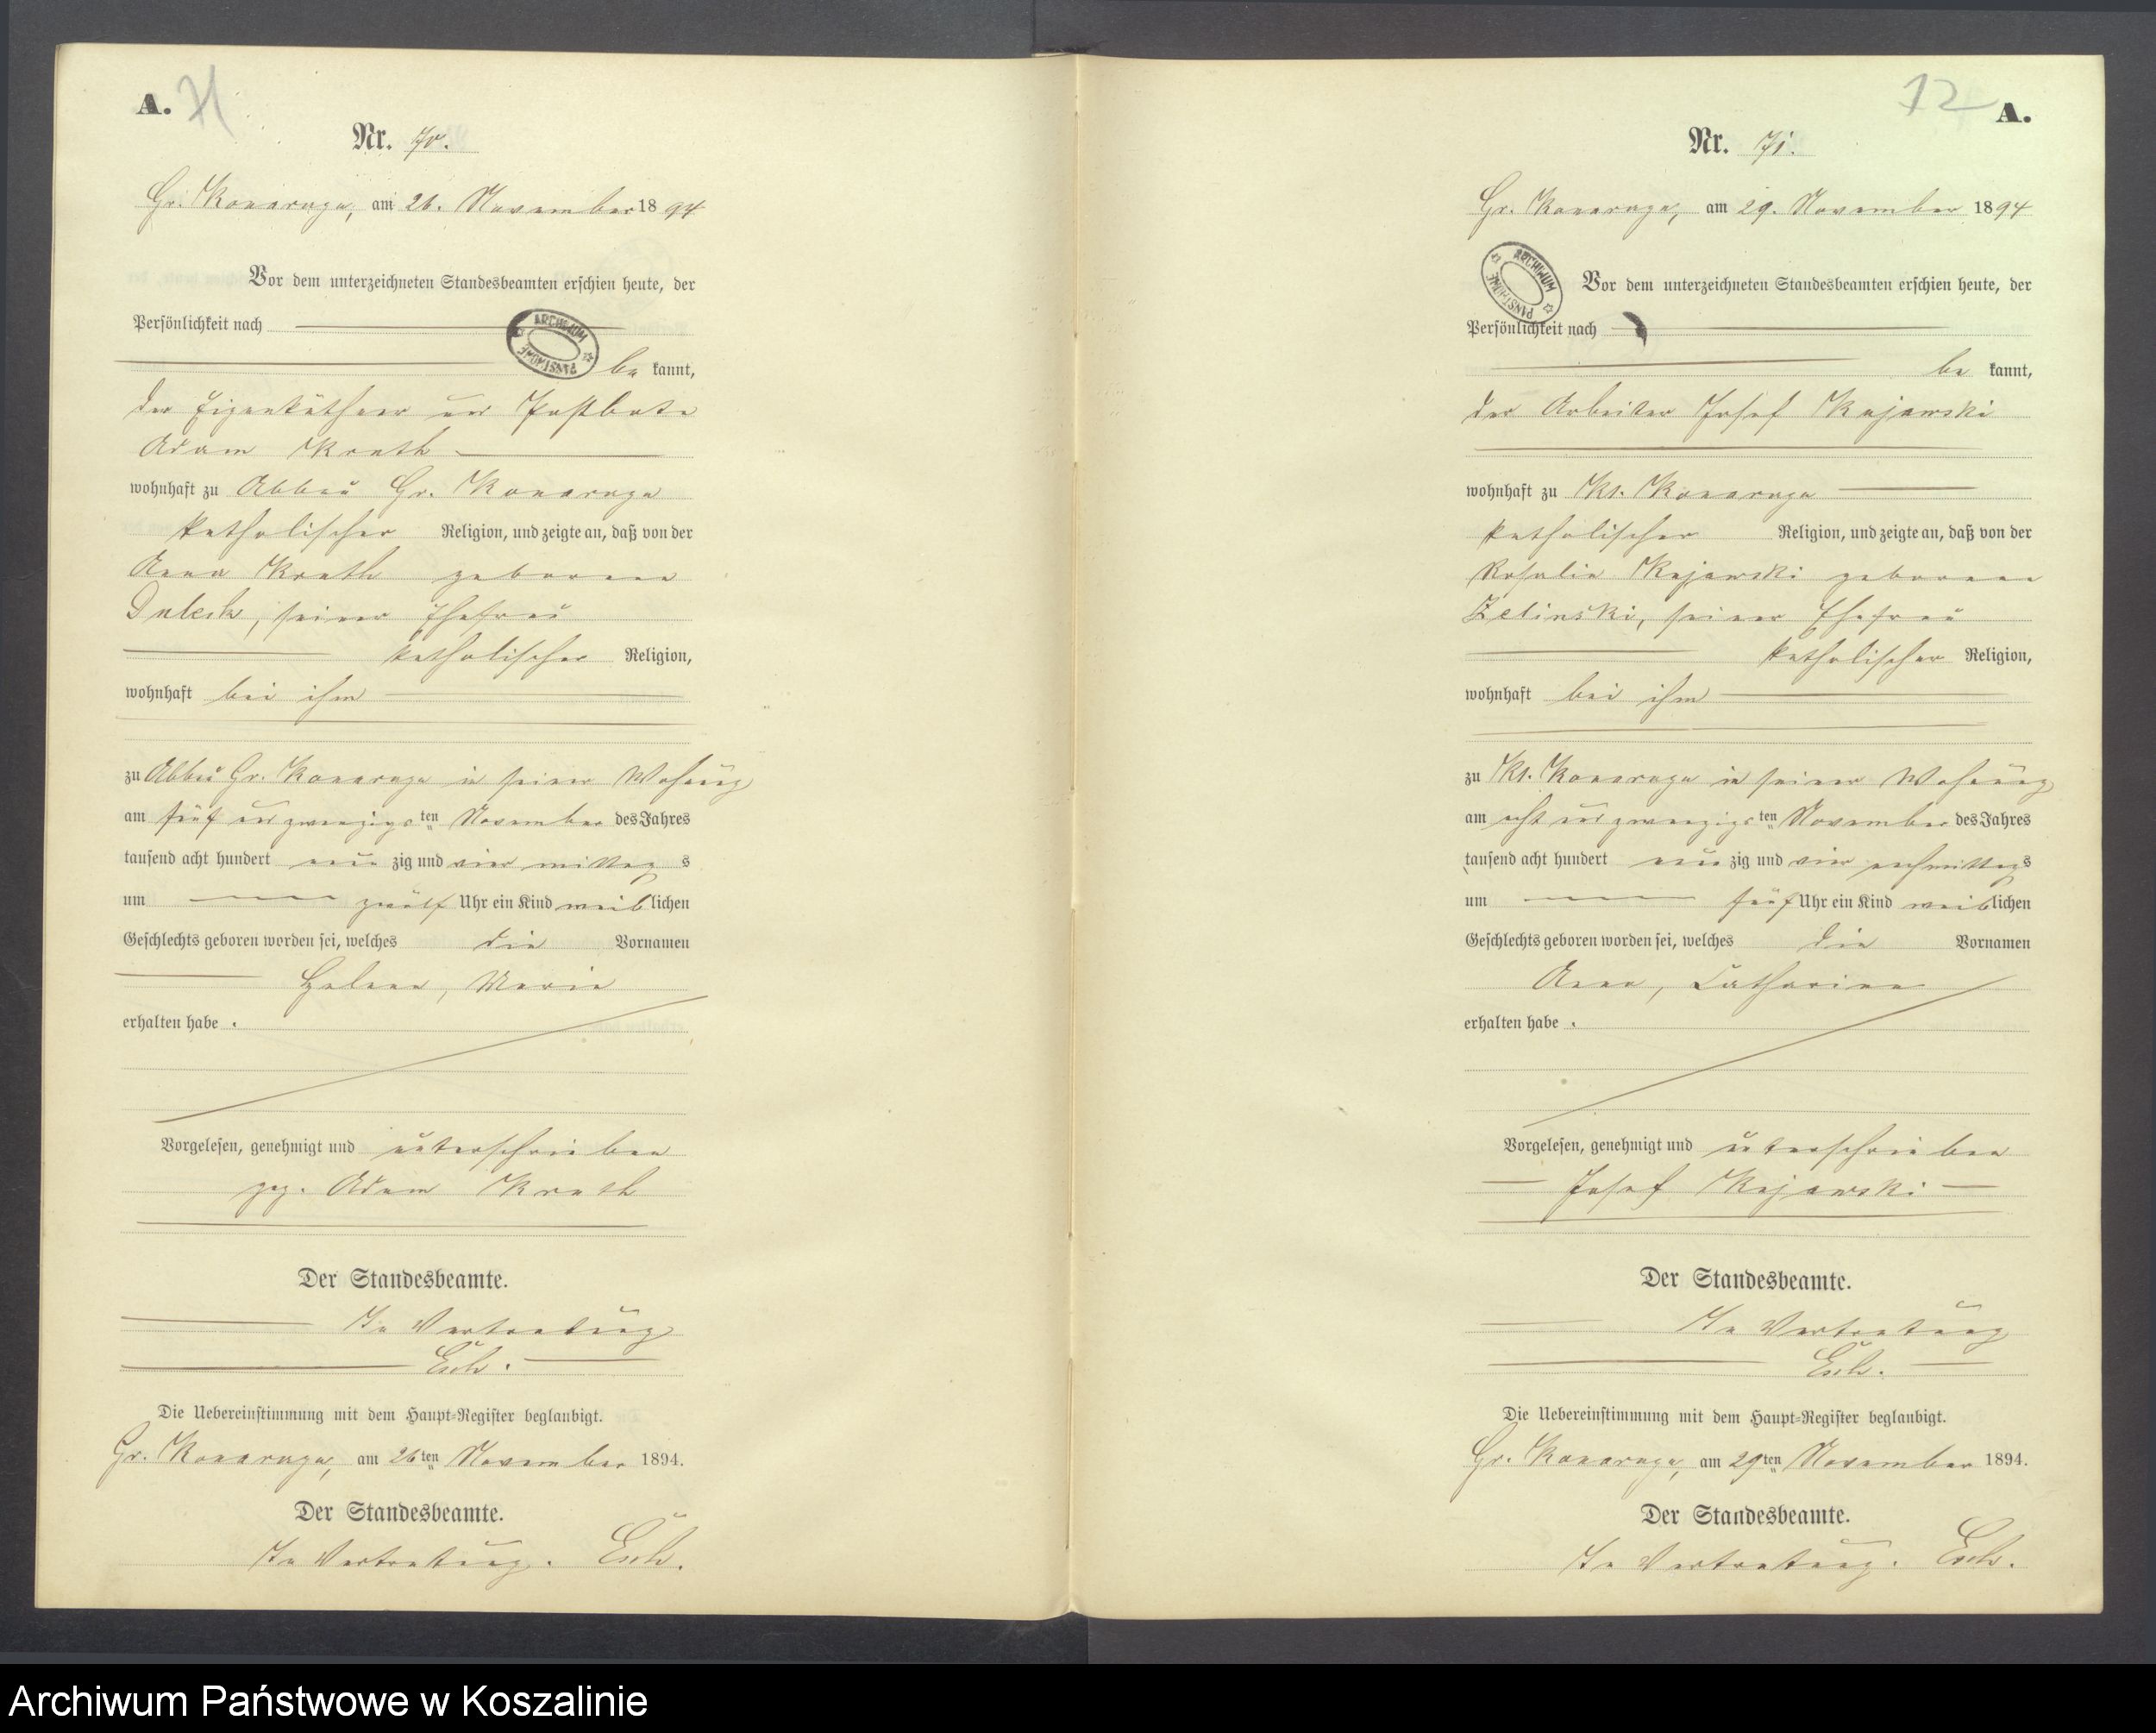 A. 71
Nr. 70.
Gr. Konarczyn, am 26. November 1894
Vor dem unterzeichneten Standesbeamten erschien heute, der
Persönlichkeit nach
ARCHIWUM PAŃSTWOWE
be kannt,
der Eigenkäthner und Postbote
Adam Kroth
wohnhaft zu Abbau Gr.
katholischer Religion, und zeigte an, daß von der
Anna Kroth geborene
seiner Ehefrau
katholischer Religion,
wohnhaft bei ihm
zu Abbau Gr. in seiner Wohnung
am fünf und zwanzigs ten November des Jahres
tausend acht hundert neun zig und vier mittag s
um zwölf Uhr ein Kind weib lichen
Geschlechts geboren worden sei, welches die Vornamen
Helene, Marie
erhalten habe .
Vorgelesen, genehmigt und unterschrieben
gez. Adam Kroth
Der Standesbeamte.
In Vertretung
Esch.
Die Uebereinstimmung mit dem Haupt-Register beglaubigt.
Gr. am 26ten November 1894.
Der Standesbeamte.
In Vertretung. Esch.
72 A.
Nr. 71.
Gr. am 29. November 1894
ARCHIWUM PAŃSTWOWE
Vor dem unterzeichneten Standesbeamten erschien heute, der
Persönlichkeit nach
be kannt,
der Arbeiter Josef Kujawski
wohnhaft zu Kl.
katholischer Religion, und zeigte an, daß von der
Rosalie Kujawski geborene
Zelinski, seiner Ehefrau
katholischer Religion,
wohnhaft bei ihm
zu Kl. in seiner Wohnung
am acht und zwanzigs ten November des Jahres
tausend acht hundert neun zig und vier nachmittags
um fünf Uhr ein Kind weib lichen
Geschlechts geboren worden sei, welches die Vornamen
Anna, Catharina
erhalten habe .
Vorgelesen, genehmigt und unterschrieben
Josef Kujawski
Der Standesbeamte.
In Vertretung
Esch.
Die Uebereinstimmung mit dem Haupt-Register beglaubigt.
Gr. am 29ten November 1894.
Der Standesbeamte.
In Vertretung. Esch.
Archiwum Państwowe w Koszalinie